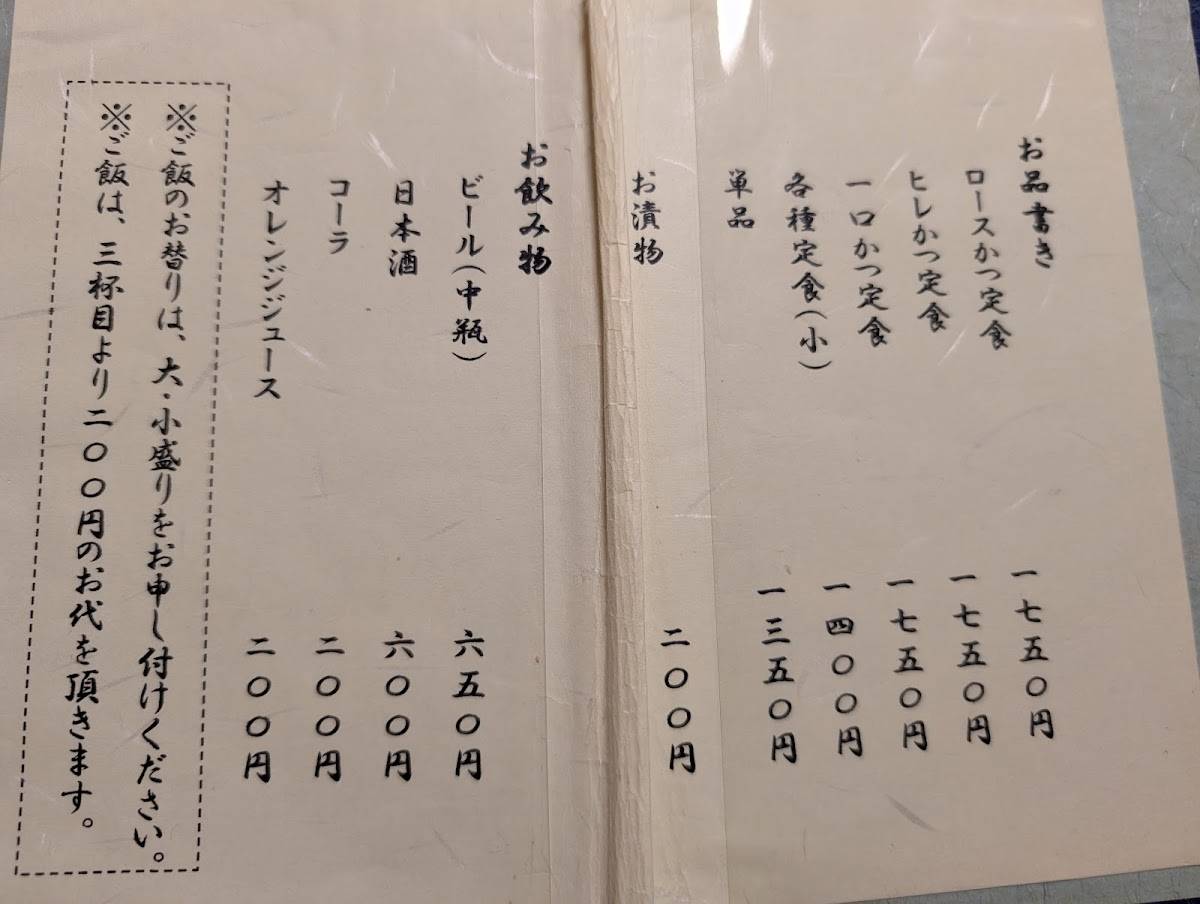 お品書き
ロースかつ定食 一七五〇円
ヒレかつ定食 一七五〇円
一口かつ定食 一七五〇円
各種定食(小) 一四〇〇円
単品 一三五〇円
お漬物 二〇〇円
お飲み物
ビール(中瓶) 六五〇円
日本酒 六〇〇円
コーラ 二〇〇円
オレンジジュース 二〇〇円
※ご飯のお替りは、大・小盛りをお申し付けください。
※ご飯は、三杯目より二〇〇円のお代を頂きます。